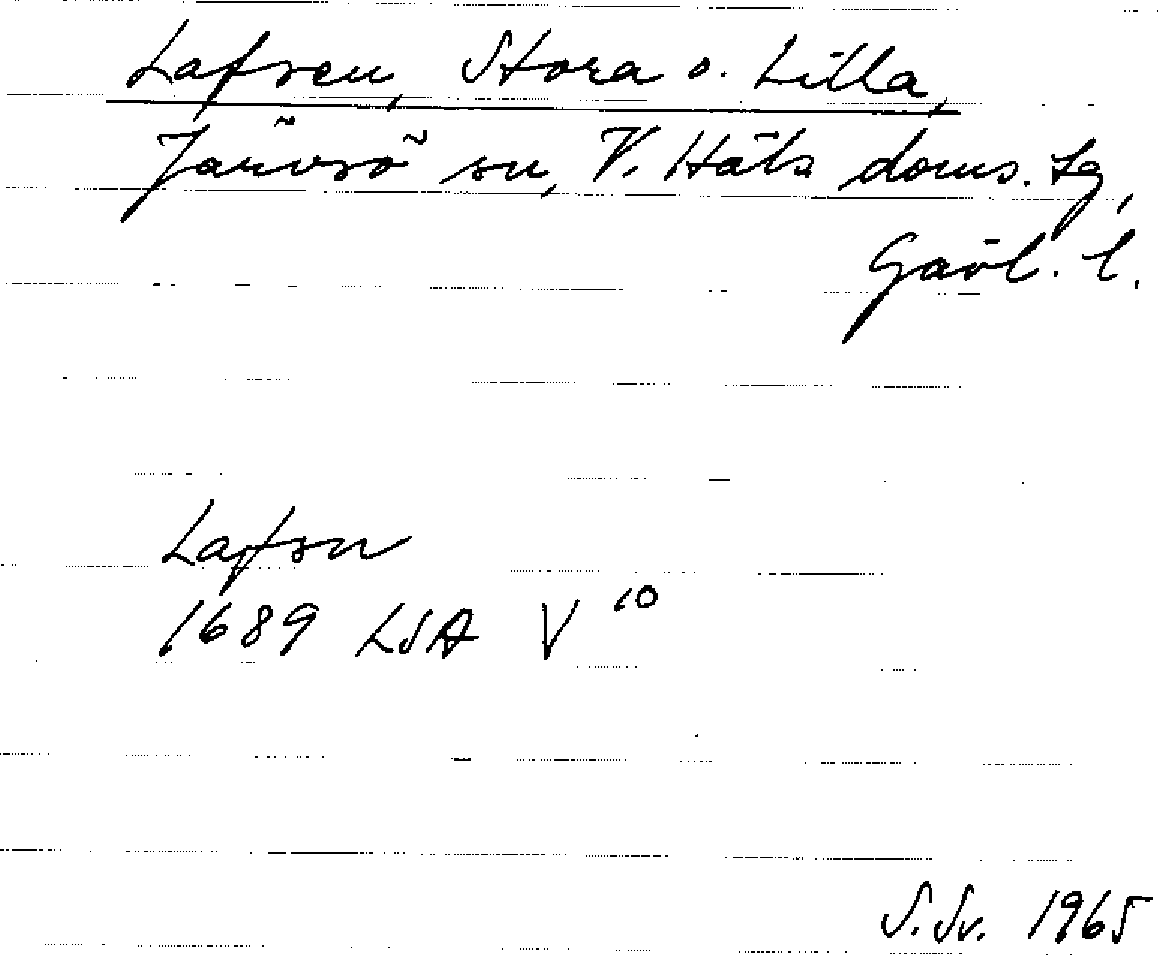 Lafsen, Stora o. Lilla,
Järvsö sn, V. Häls doms. tg,
Gävl. l.
Lafsn
1689 LSA V 10
S. Sv. 1965